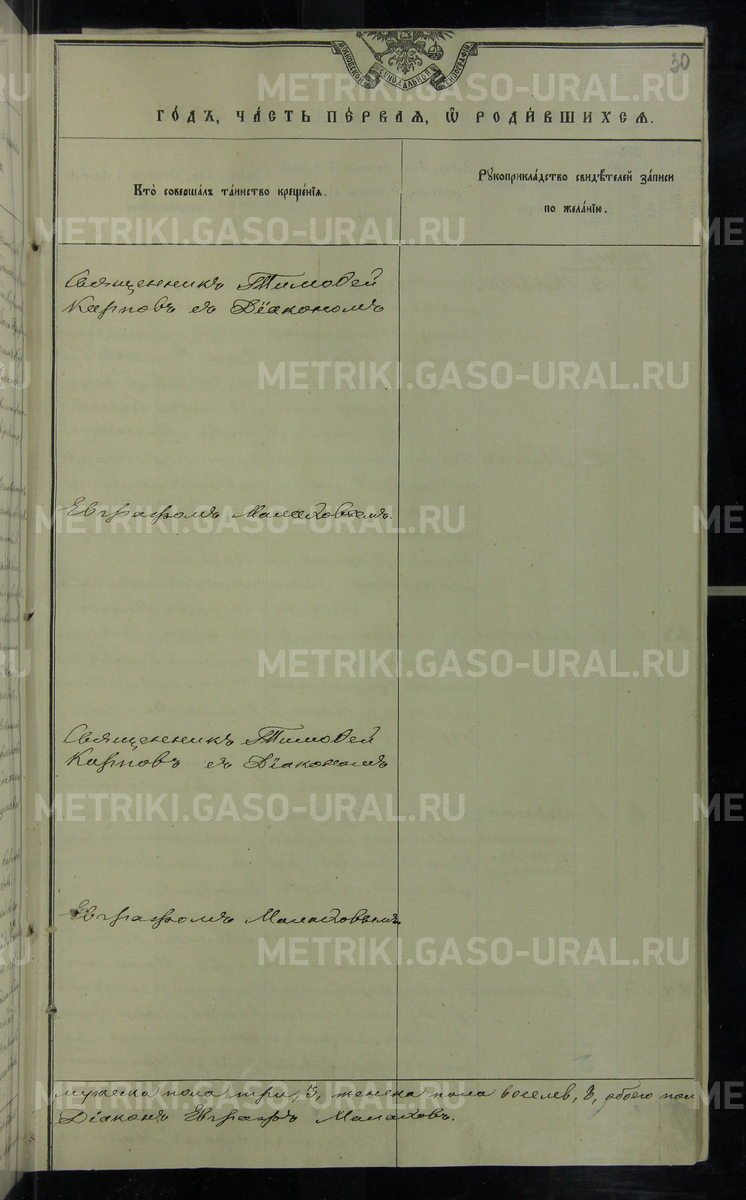 30
МОСКОВСКОЙ СѴНОДАЛЬНОЙ ТИПОГРАФІИ
ГО́ДЪ, ЧА́СТЬ ПЕ́РВАЯ, Ѽ РОДИ́ВШИХСѦ.
Кто̀ соверша́лъ та́инство креще́нїѧ.
Рꙋкоприкла́дство свидѣ́телей за́писи
по жела́нїю.
Священникъ Тимоѳей
Карповъ съ Діакономъ
Евграфомъ Малаховымъ.
Священникъ Тимоѳей
Карповъ съ Діакономъ
Евграфомъ Малаховымъ
мужеска пола три, 3, женска пола восемь, 8, обоего пол
Діаконъ Евграфъ Малаховъ.
METRIKI.GASO-URAL.RU